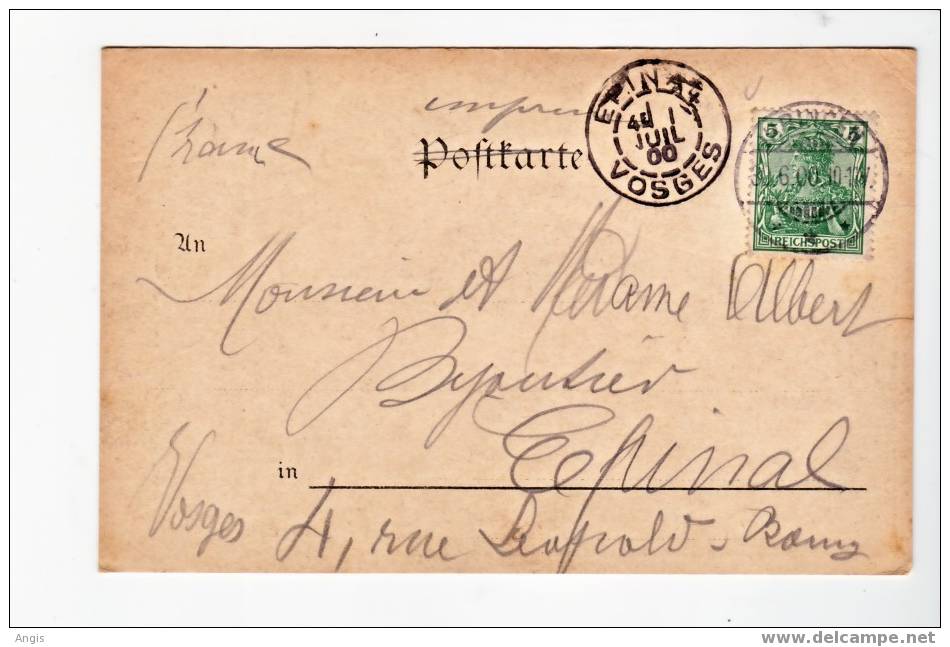 France
Postkarte
EPINAL
4E 1
JUIL
00
VOSGES
5 5
REICHSPOST
An
Monsieur et Madame Albert
Bijoutier
in Epinal
Vosges 4, rue Léopold
Angis
www.delcampe.net